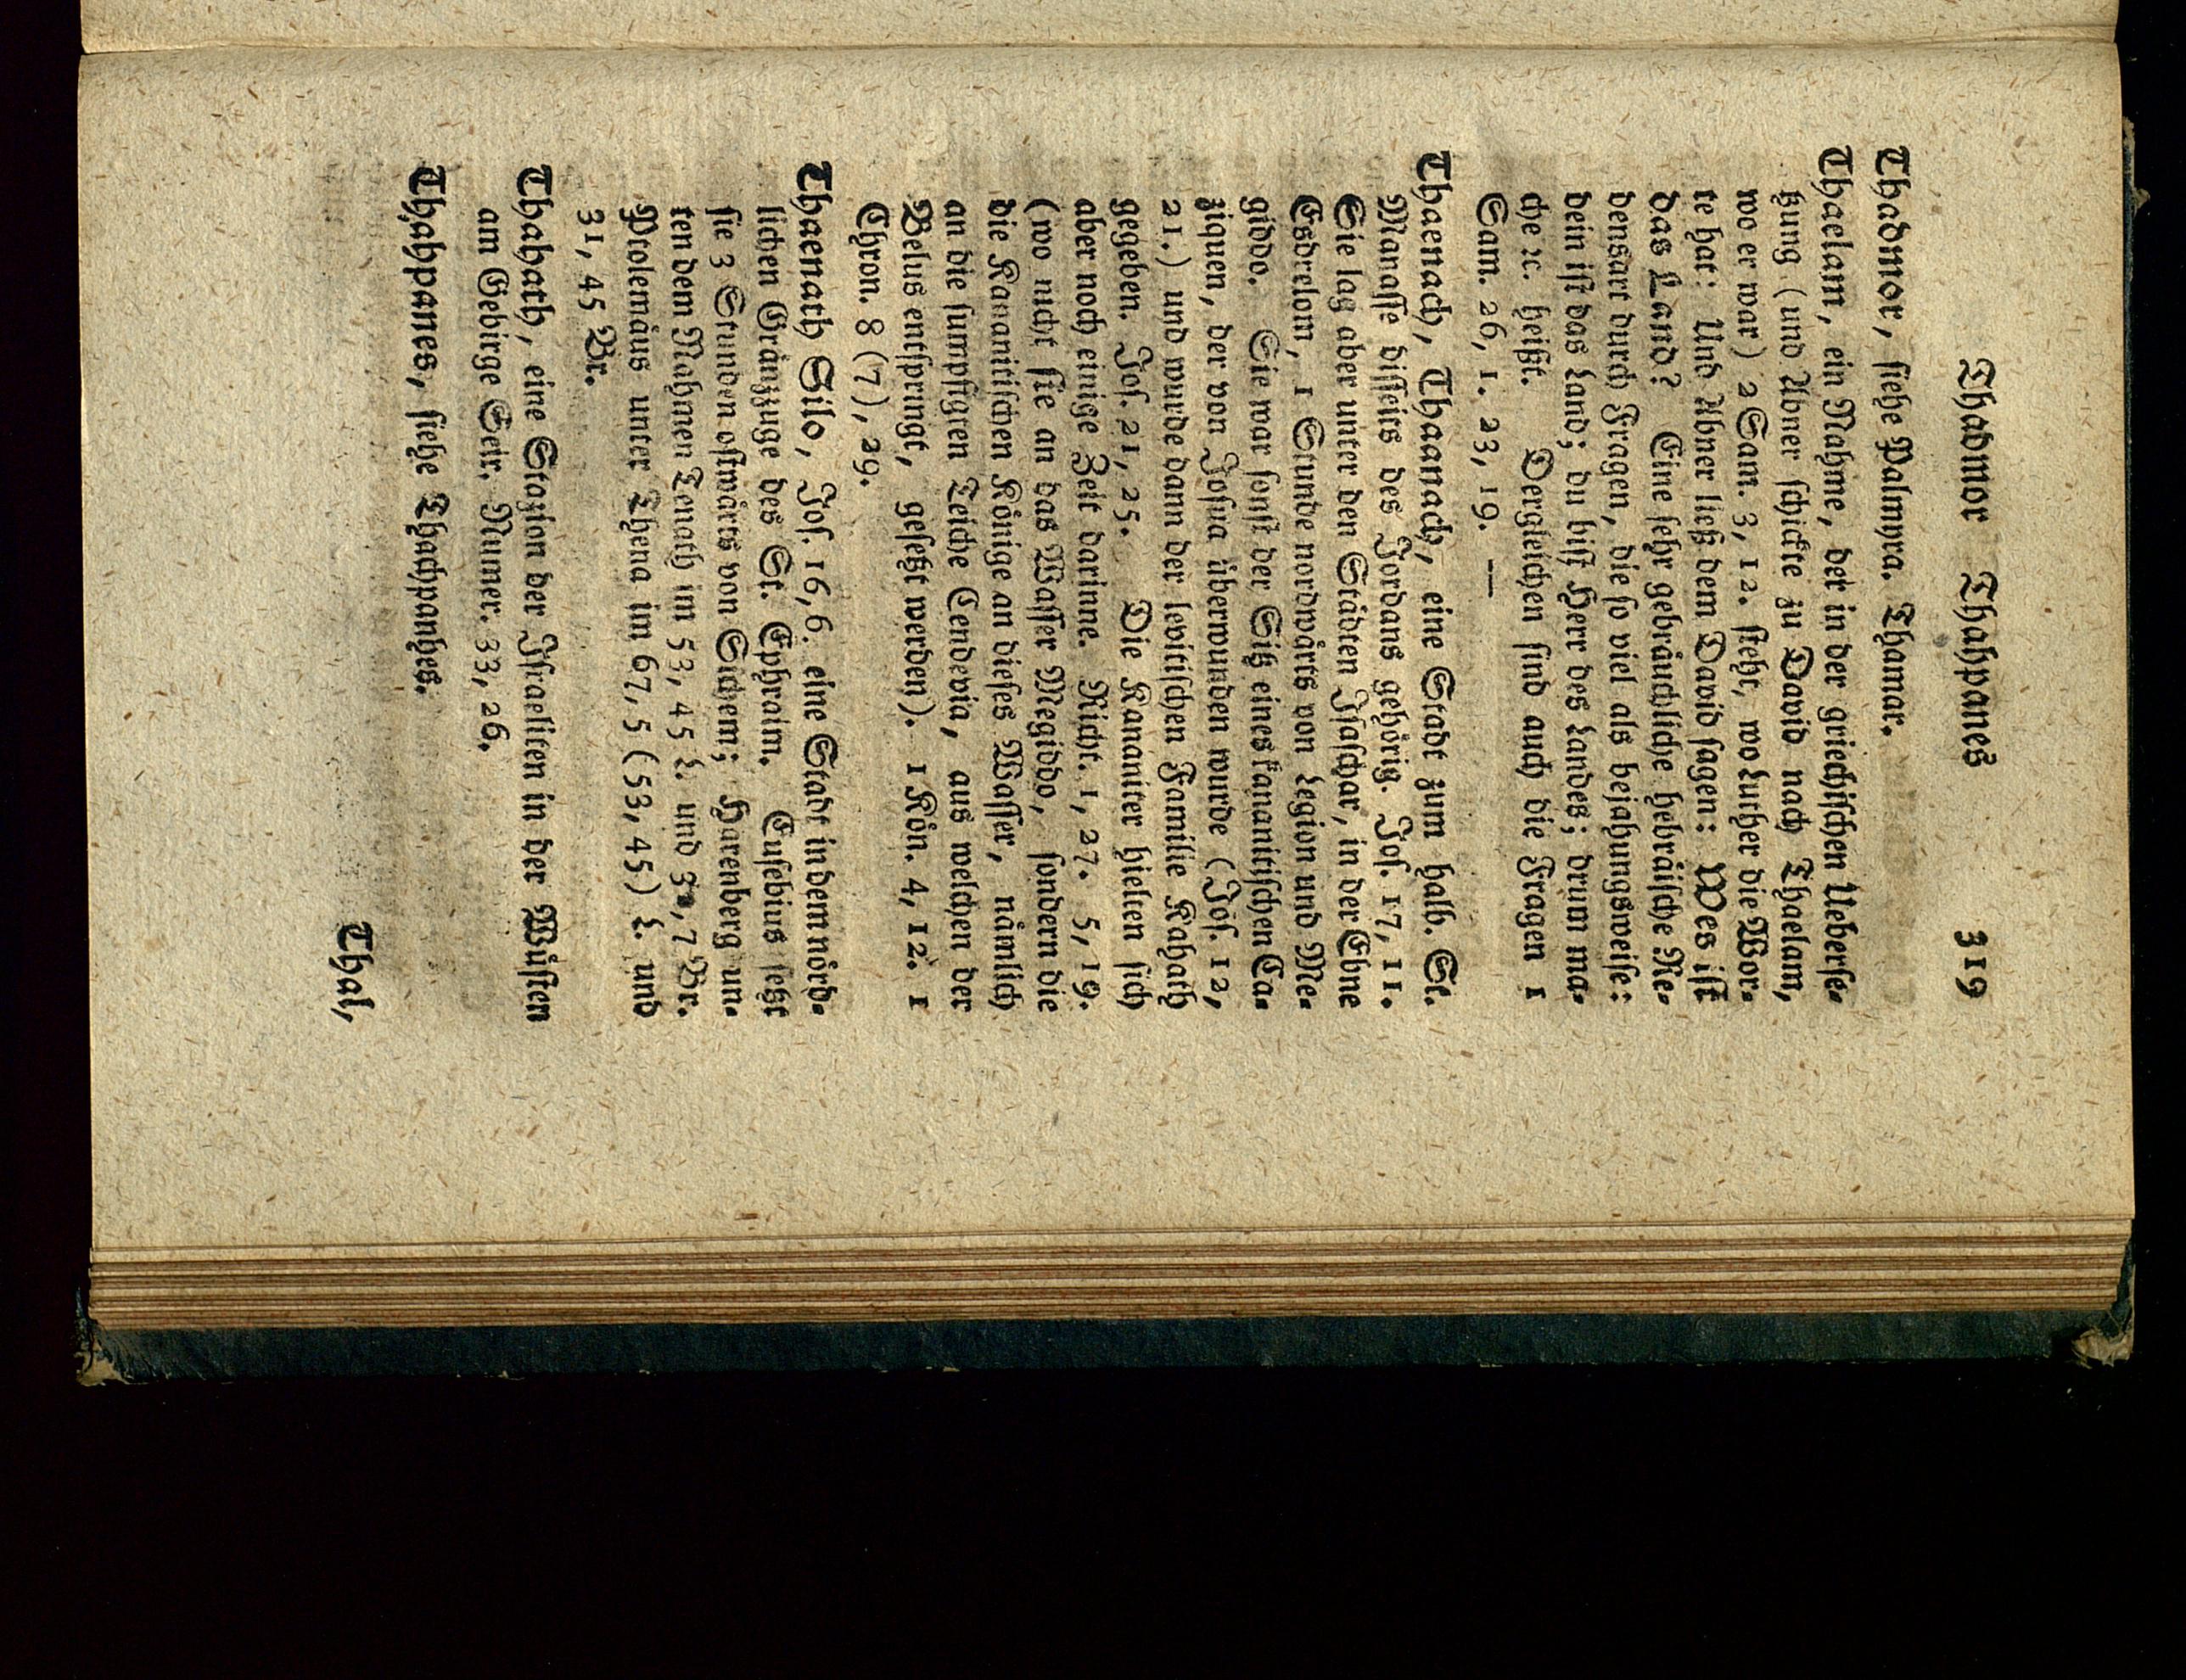 Thadmor Thahpanes 319
Thadmor, ſiehe Palmyra. Thamar.
Thaelam, ein Nahme, der in der griechiſchen Ueberſe-
tzung (und Abner ſchickte zu David nach Thaelam,
wo er war) 2 Sam. 3, 12. ſteht, wo Luther die Wor-
te hat: Und Abner ließ dem David ſagen: Wes iſt
das Land? Eine ſehr gebräuchliche hebräiſche Re-
densart durch Fragen, die ſo viel als bejahungsweiſe:
dein iſt das Land; du biſt Herr des Landes; drum ma-
che ꝛc. heißt. Dergleichen ſind auch die Fragen 1
Sam. 26, 1. 23, 19. —
Thaenach, Thaanach, eine Stadt zum halb. St.
Manaſſe diſſeits des Jordans gehörig. Joſ. 17, 11.
Sie lag aber unter den Städten Iſaſchar, in der Ebne
Esdrelom, 1 Stunde nordwärts von Legion und Me-
giddo. Sie war ſonſt der Sitz eines kananitiſchen Ca-
ziquen, der von Joſua überwunden wurde (Joſ. 12,
21.) und wurde dann der levitiſchen Familie Kahath
gegeben. Joſ. 21, 25. Die Kananiter hielten ſich
aber noch einige Zeit darinne. Richt. 1, 27. 5, 19.
(wo nicht ſie an das Waſſer Megiddo, ſondern die
die Kananitiſchen Könige an dieſes Waſſer, nämlich
an die ſumpfigten Teiche Cendevia, aus welchen der
Belus entſprungt, geſetzt werden). 1 Kön. 4, 12. 1
Chron. 8 (7), 29.
Thaenath Silo, Joſ. 16, 6. eine Stadt in dem nörd-
lichen Gränzzuge des St. Ephraim. Euſebius ſetzt
ſie 3 Stunden oſtwärts von Sichem; Harenberg un-
ter dem Nahmen Tenath im 53, 45 L. und 7 Br.
Ptolemäus unter Thena im 67, 5 (53, 45) L. und
31, 45 Br.
Thahath, eine Stazion der Iſraeliten in der Wüſten
am Gebirge Seir. Numer. 33, 26.
Thahpanes, ſiehe Thachpanhes.
Thal,